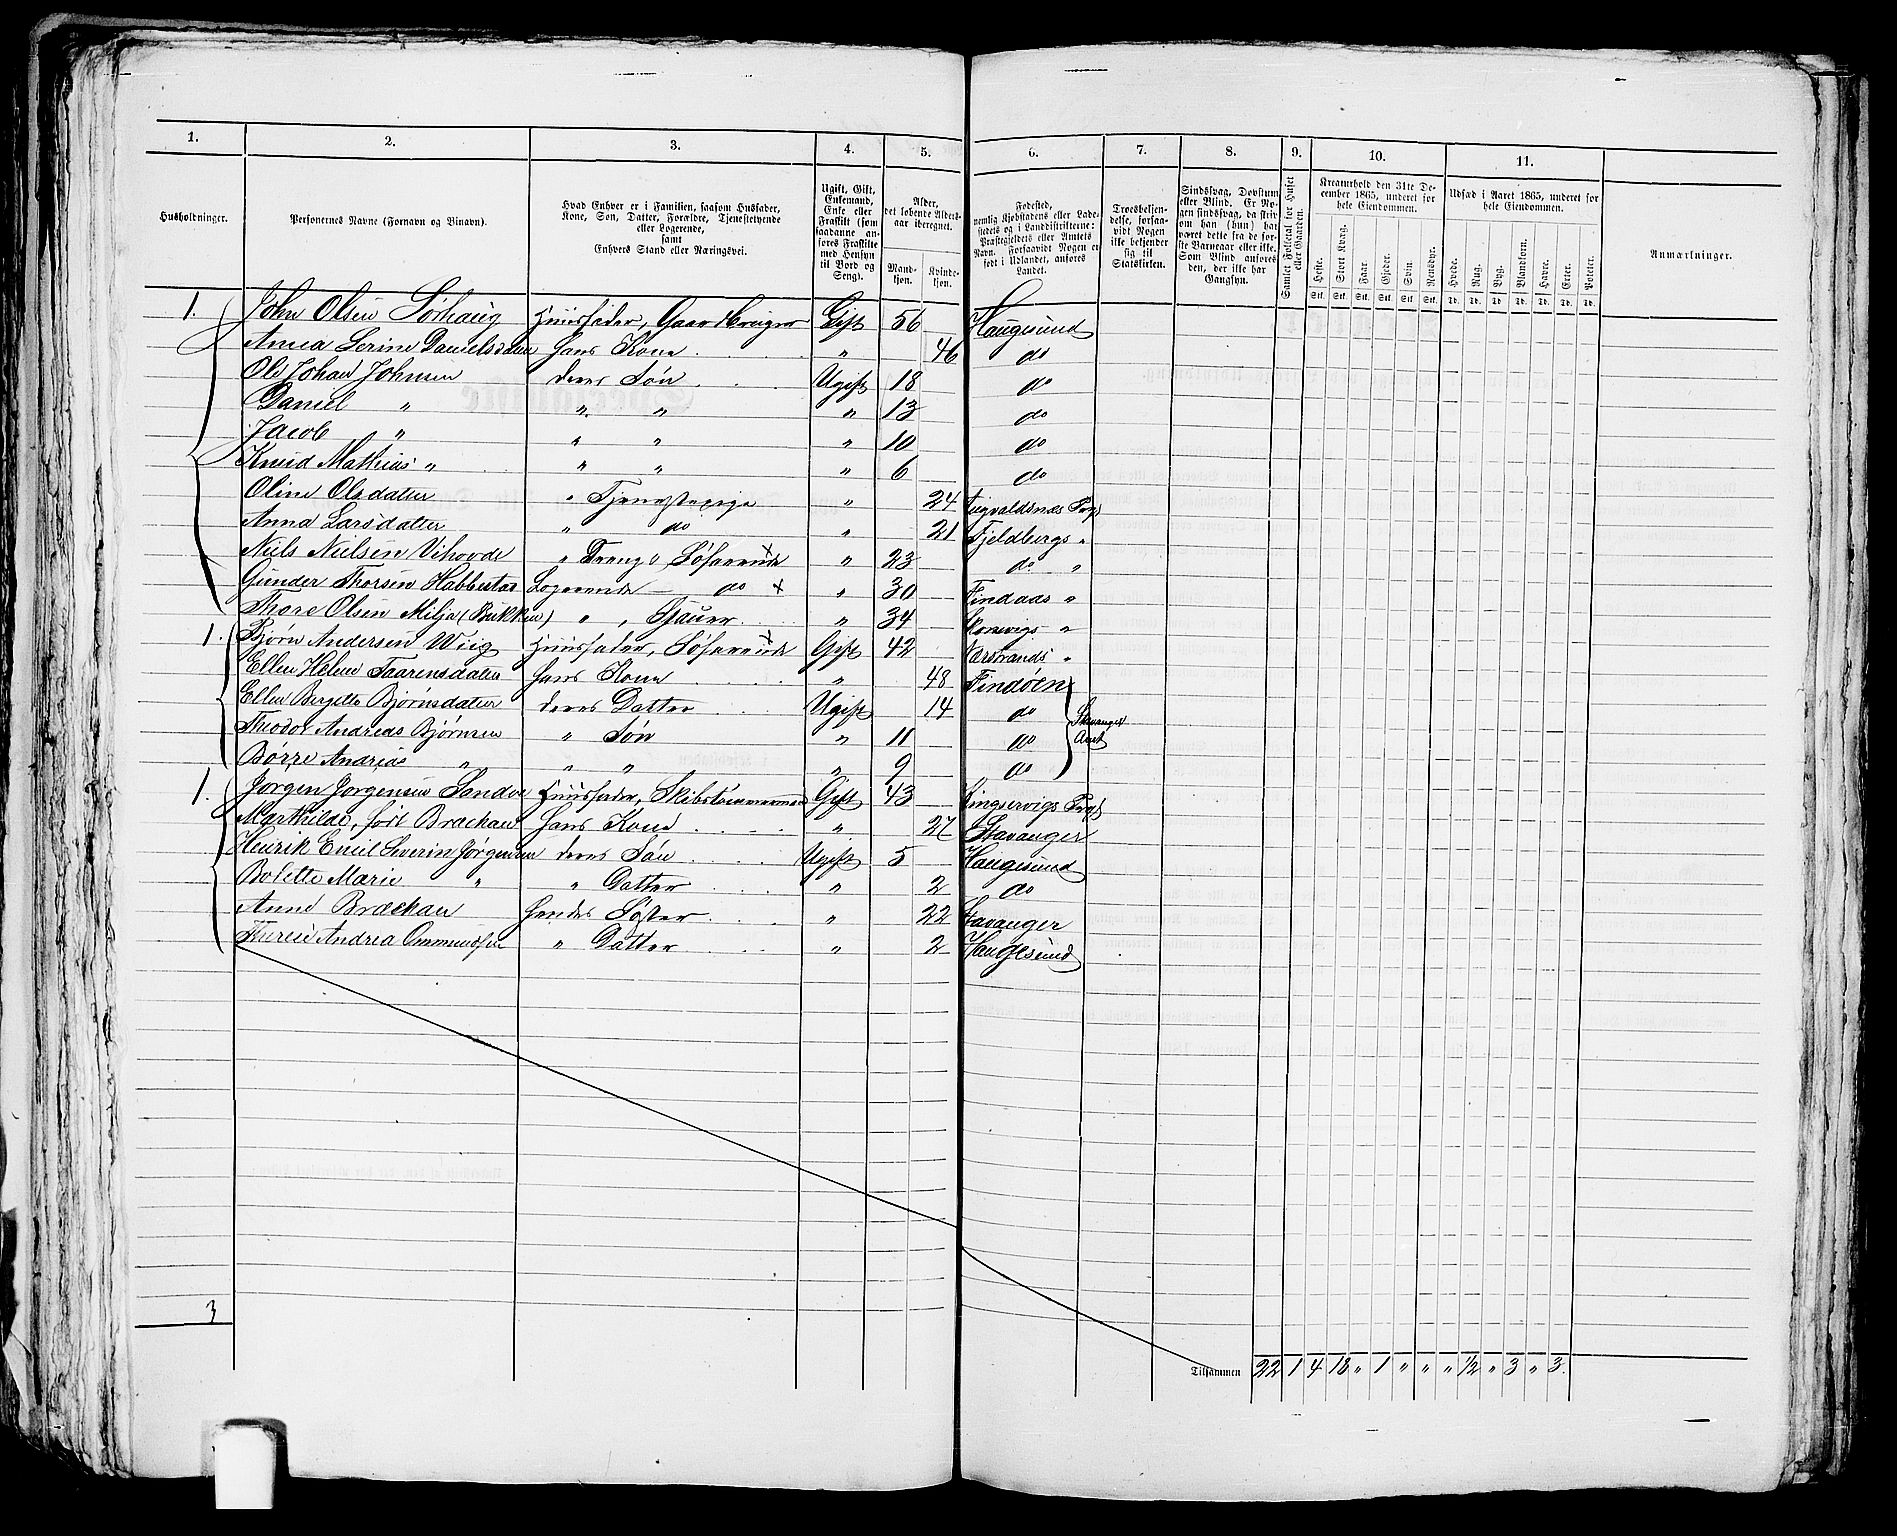 1. 2. 3. 4. 5. 6. 7. 8. 9. 10. 11.
Husholdninger.
Personernes Navne (Fornavn og Binavn).
Hvad Enhver er i Familien, saasom Husfader, Kone, Søn, Datter, Forældre, Tjenstetyende eller Logerende, samt Enhvers Stand eller Næringsvei.
Ugift, Gift, Enkemand, Enke eller Fraskilt (som saadanne anføres Fraskilte med Hensyn til Bord og Seng).
Alder, det løbende Aldersaar iberegnet.
Mandkjøn. Kvindekjøn.
Fødested, nemlig Kjøbstadens eller Ladestedets og i Landdistrikterne: Præstegjeldets eller Amtets Navn. Forsaavidt Nogen er født i Udlandet, anføres Landet.
Troesbekjendelse, forsaavidt Nogen ikke bekjender sig til Statskirken.
Sindssvag, Døvstum eller Blind. Er Nogen sindssvag, da skrives om han (hun) har været dette fra de første Barneaar eller ikke. Som Blind anføres den, der ikke har Gangsyn.
Samlet Folketal for Huset eller Gaarden.
Kreaturhold den 31te December 1865, underet for hele Eiendommen.
Heste. Stort Kvæg. Faar. Gjeder. Svin. Rensdyr.
Stk. Stk. Stk. Stk. Stk. Stk.
Udsæd i Aaret 1865, underet for hele Eiendommen.
Hvede. Rug. Byg. Blandkorn. Havre. Erter. Poteter.
Td. Td. Td. Td. Td. Td. Td.
Anmærkninger.
1. John Olsen Sørhaug Huusfader, Gaardbruger Gift 56 Haugesund
Anna Serine Danielsdatter hans Kone " 46 do
Ole Johan Johnsen deres Søn Ugift 18 do
Daniel " " " " 13 do
Jacob " " " " 10 do
Knud Mathias " " " " 6 do
Oline Olsdatter " Tjenestepige " 24 Augvaldsnæs Prgj
Anna Larsdatter " do " 21 Fjeldbergs "
Niels Nielsen Vihovde " Dreng, Søfarende × " 23 do "
Gunder Thorsen Logerende — do × " 30 Findaas "
Thore Olsen Milja (Bukken) " , Gauer " 34 Skonevigs "
1. Bjørn Andersen Wiig Huusfader, Søfarende × Gift 42 Nærstrands "
Ellen Helene Taarensdatter hans Kone " 48 Findøen
Ellen Bergitte Bjørnsdatter deres Datter Ugift 14 do Stavanger Amt
Theodor Andreas Bjørnsen " Søn " 11 do
Børre Andreas " " " " 9 do
1. Jørgen Jørgensen Sandvæ Huusfader, Skibstømmermand Gift 43 Kingservigs Prgj
Marthilde, født Brækhan hans Kone " 27 Stavanger
Henrik Emil Severin Jørgensen deres Søn Ugift 5 Haugesund
Bolette Marie " " Datter " 2 do
Anne Brækhan hendes Søster " 22 Stavanger
Andrea Ommundsen " Datter " 2 Haugesund
3
Tilsammen 22 1 4 18 " 1 " " " 1/2 " 3 " 3